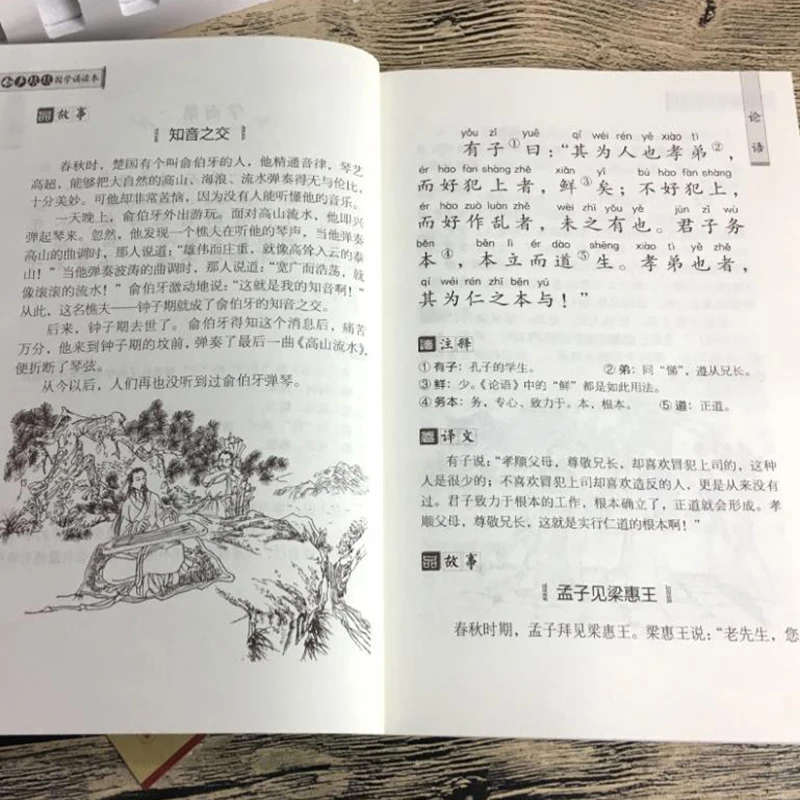 国学诵读本
品故事
知音之交
春秋时，楚国有个叫俞伯牙的人，他精通音律，琴艺
高超，能够把大自然的高山、海浪、流水弹奏得无与伦比，
十分美妙。可他却非常苦恼，因为没有人能听懂他的音乐。
一天晚上，俞伯牙外出游玩。面对高山流水，他即兴
弹起琴来。忽然，他发现一个樵夫在听他的琴声，当他弹奏
高山的曲调时，那人说道：“雄伟而庄重，就像高耸入云的泰
山！”当他弹奏波涛的曲调时，那人说道：“宽广而浩荡，就
像滚滚的流水！”俞伯牙激动地说：“这就是我的知音啊！”
从此，这名樵夫——钟子期就成了俞伯牙的知音之交。
后来，钟子期去世了。俞伯牙得知这个消息后，痛苦
万分，他来到钟子期的坟前，弹奏了最后一曲《高山流水》，
便折断了琴弦。
从今以后，人们再也没听到过俞伯牙弹琴。
论语
yǒu zǐ yuē qí wéi rén yě xiào tì
有子①曰：“其为人也孝弟②，
ér hào fàn shàng zhě xiǎn yǐ bú hào fàn shàng
而好犯上者，鲜③矣；不好犯上，
ér hào zuò luàn zhě wèi zhī yǒu yě jūn zǐ wù
而好作乱者，未之有也。君子务
běn běn lì ér dào shēng xiào tì yě zhě
本④，本立而道⑤生。孝弟也者，
qí wéi rén zhī běn yú
其为仁之本与！”
注释
①有子：孔子的学生。 ②弟：同“悌”，遵从兄长。
③鲜：少。《论语》中的“鲜”都是如此用法。
④务本：务，专心、致力于。本，根本。 ⑤道：正道。
译文
有子说：“孝顺父母，尊敬兄长，却喜欢冒犯上司的，这种
人是很少的；不喜欢冒犯上司却喜欢造反的人，更是从来没有
过。君子致力于根本的工作，根本确立了，正道就会形成。孝
顺父母，尊敬兄长，这就是实行仁道的根本啊！”
品故事
孟子见梁惠王
春秋时期，孟子拜见梁惠王。梁惠王说：“老先生，您